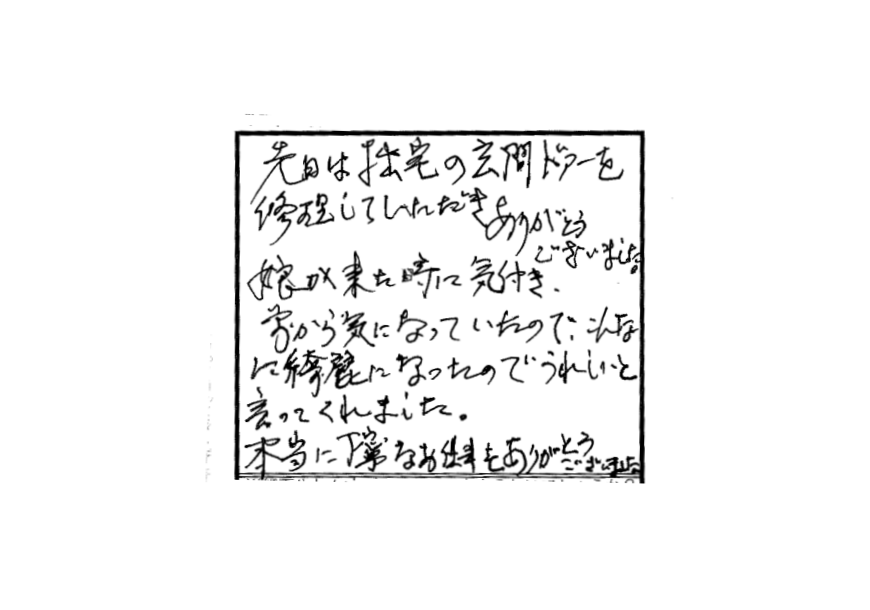 先日は拙宅の玄関ドアーを
修理していただきありがとう
ございました。
娘が来た時に気付き、
常から気になっていたので、こんな
に綺麗になったのでうれしいと
言ってくれました。
本当に丁寧なお仕事もありがとう
ございました